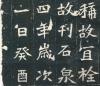 稱故宜栓
故刊石泉
四年歲次
一日癸酉